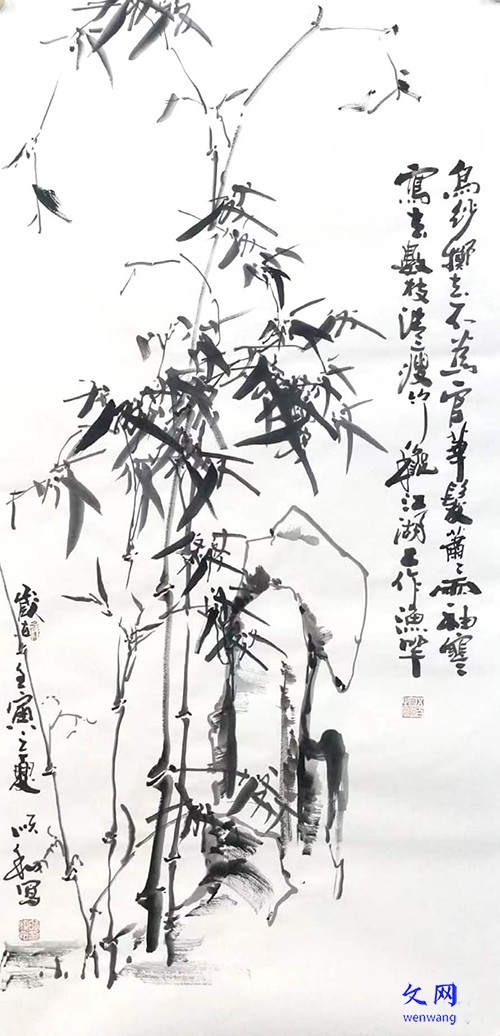 烏紗擲去不為官華髮蕭〻兩袖寒
寫去數枝清瘦竹龝江湖上作漁竿
歲在壬寅之夏
寫
文网
wenwang